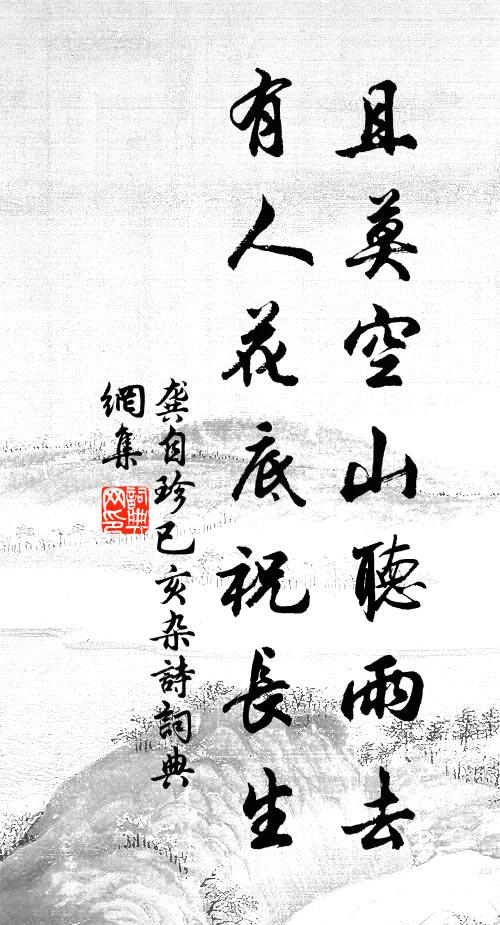 且莫空山聽雨去
有人花底祝長生
龔自珍己亥杂詩詞典
網集
詞典
网印